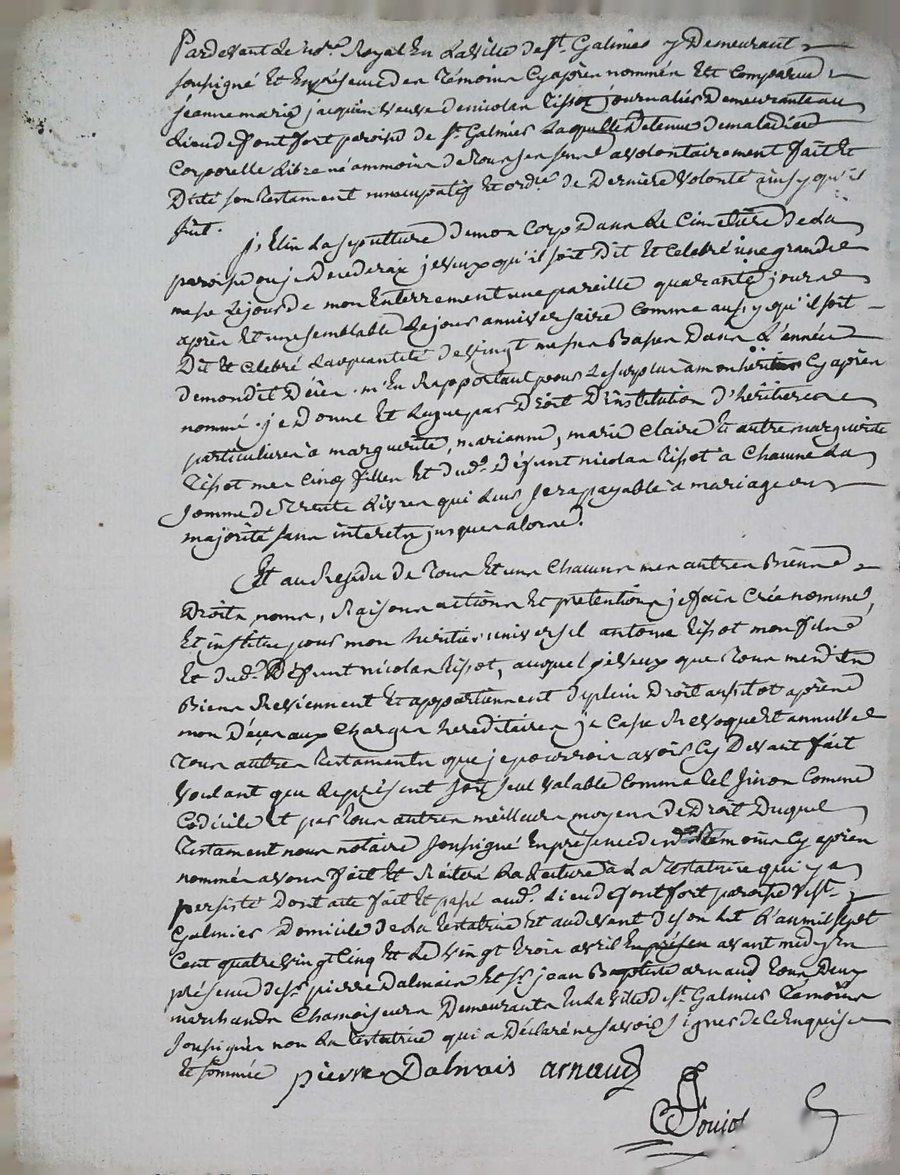 Pardevant le no.re Royal En La Ville de St. Galmier y Demeurant
soussigné Et En présence des Témoins Cy après nommés Est Comparue
jeanne marie jacquin veuve de nicolas Tissot journaliès Demeurante au
Lieu de font fort paroisse de St. Galmier Laquelle Detenue de maladie
Corporelle Libre néammoins de Tous ses sens a volontairement fait Et
Dicté son Testament nuncupatif Et ord.re de Derniere Volonté ainsy qu'il
suit.
j'Elis La sepulture de mon Corps Dans Le Cimetière de La
paroisse ou je Decederai je veux qu'il soit Dit Et Celebré une grande
messe Le jour de mon Enterrement une pareille quarante jours
après Et une semblable Le jour anniversaire Comme aussy qu'il soit
Dit Et Celebré La quantité de Vingt messes Basses Dans L'année
de mon dit Décès m'En Rapportant pour Le surplus à mon héritier Cy après
nommé. je Donne Et Legue par Droit D'institution D'héritieres
particulieres à marguerite, marianne, marie Claire Et autre marguerite
Tissot mes Cinq filles Et dud. Défunt nicolas Tissot a Chacune La
somme de Trente Livres qui Leur sera payable à mariage ou
majorité sans interets jusques alors.
Et au Residu de Tous Et uns Chacuns mes autres Biens
Droits, noms, Raisons actions Et pretentions je fais Crée nomme,
Et institue pour mon heritier universel antoine Tissot mon fils
Et dud. Défunt nicolas Tissot, auquel je veux que Tous mes dits
Biens Reviennent Et appartiennent de plein Droit aussitot après
mon Décès aux Charges hereditaires je Casse Revoque Et annulle
Tous autres Testaments que je pourrois avoir Cy Devant fait
Voulant que Le present soit seul Valable Comme Tel sinon Comme
Codicile Et par Tous autres meilleurs moyens de Droit Duquel
Testament nous notaire soussigné En présence des Témoins Cy après
nommés avons fait Et Réitéré La Lecture à La Testatrice qui y a
persisté Dont acte fait Et passé aud. Lieu de font fort paroisse de St.
Galmier Domicile de La Testatrice Et audevant de son Lit L'an mil sept
Cent quatre vingt Cinq Et Le Vingt trois avril avant midy En
présence de sr. pierre Dalmais Et sr. jean Baptiste arnaud Tous Deux
marchands Chamoiseurs Demeurants En La Ville de St. Galmier Témoins
soussignés non La Testatrice qui a Déclaré ne savoir signer de ce Enquise
Et sommée pierre Dalmais arnaud